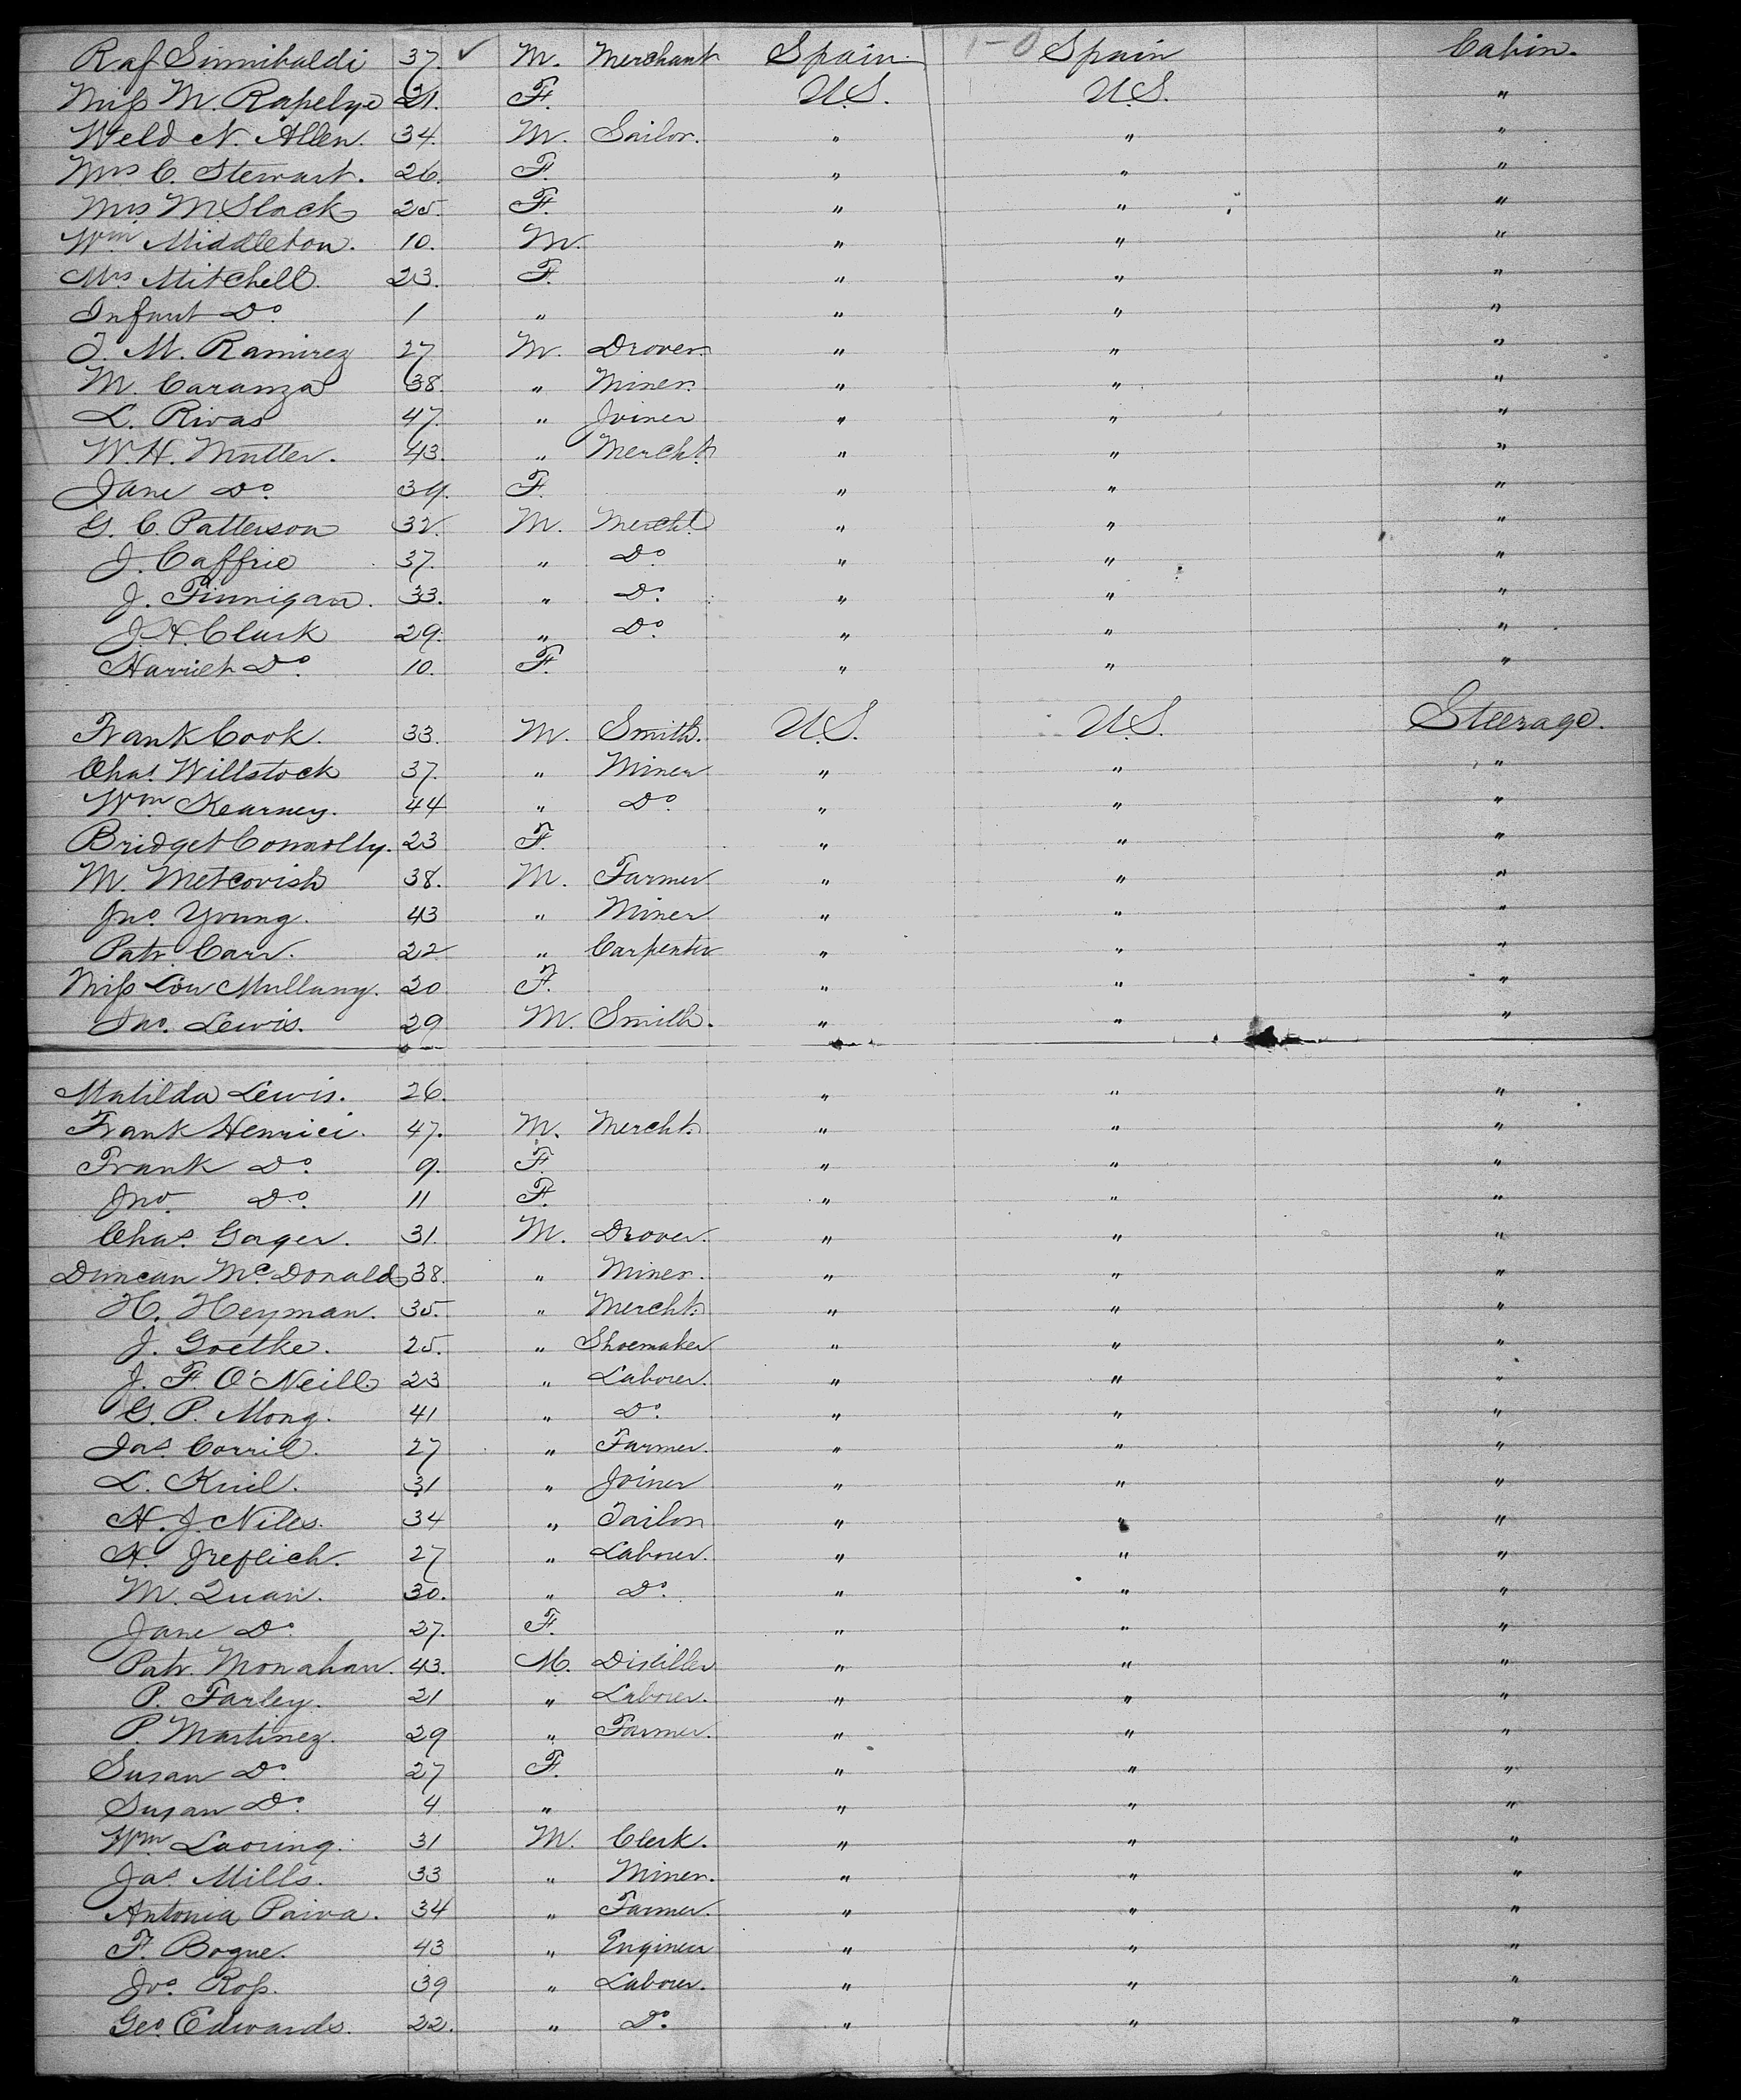 Raf Sinnibaldi 37. ✓ M. Merchant Spain Spain Cabin.
Miss M. Rapelye 21. F. U.S. U.S. "
Weld N. Allen. 34. M. Sailor. " " "
Mrs C. Stewart. 26. F. " " "
Mrs. M. Slack 25. F. " " "
Wm Middleton. 10. M. " " "
Mrs Mitchell. 23. F. " " "
Infant Do. 1 " " " "
J. M. Ramirez 27 M. Drover. " " "
M. Caranza 38. " Miner. " " "
L. Rivas 47. " Joiner " " "
W. H. Mutter. 43. " Mercht. " " "
Jane Do. 39. F. " " "
G. C. Patterson 32. M. Mercht. " " "
J. Caffrie 37. " Do " " "
J. Finnigan. 33. " Do. " " "
J. H. Clark 29. " Do. " " "
Harriet Do. 10. F. " " "
Frank Cook. 33. M. Smith. U.S. U.S. Steerage.
Chas. Willstock 37. " Miner " " "
Wm. Kearney. 44 " Do. " " "
Bridget Connolly. 23 F. " " "
M. Metcovich 38. M. Farmer " " "
Jno. Young. 43 " Miner " " "
Patr. Carr. 22 " Carpenter " " "
Miss Lou Mullany. 20 F. " " "
Jno. Lewis. 29 M. Smith. " " "
Matilda Lewis. 26. " " "
Frank Henrici. 47. M. Mercht. " " "
Frank Do. 9. F. " " "
Jno. Do. 11 F. " " "
Chas. Gager. 31. M. Drover. " " "
Duncan McDonald 38. " Miner. " " "
H. Heyman. 35. " Mercht. " " "
J. Goetke. 25. " Shoemaker " " "
J. F. O'Neill. 23 " Laborer. " " "
G. P. Mong. 41 " Do. " " "
Jas. Corril. 27 " Farmer. " " "
L. Kuil. 31 " Joiner " " "
H. J. Niles. 34 " Tailor " " "
H. 27 " Laborer. " " "
M. Quan. 30. " Do. " " "
Jane Do. 27. F. " " "
Patr. Monahan. 43. M. Distiller " " "
P. Farley. 21 " Laborer. " " "
P. Martinez. 29 " Farmer. " " "
Susan Do. 27 F. " " "
Susan Do. 4 " " " "
Wm. Laoring. 31 M. Clerk. " " "
Jas. Mills. 33 " Miner. " " "
Antonia Paiva. 34 " Farmer. " " "
F. Bogue. 43 " Engineer " " "
Jno. Ross. 39 " Laborer. " " "
Geo. Edwards. 22. " Do. " " "